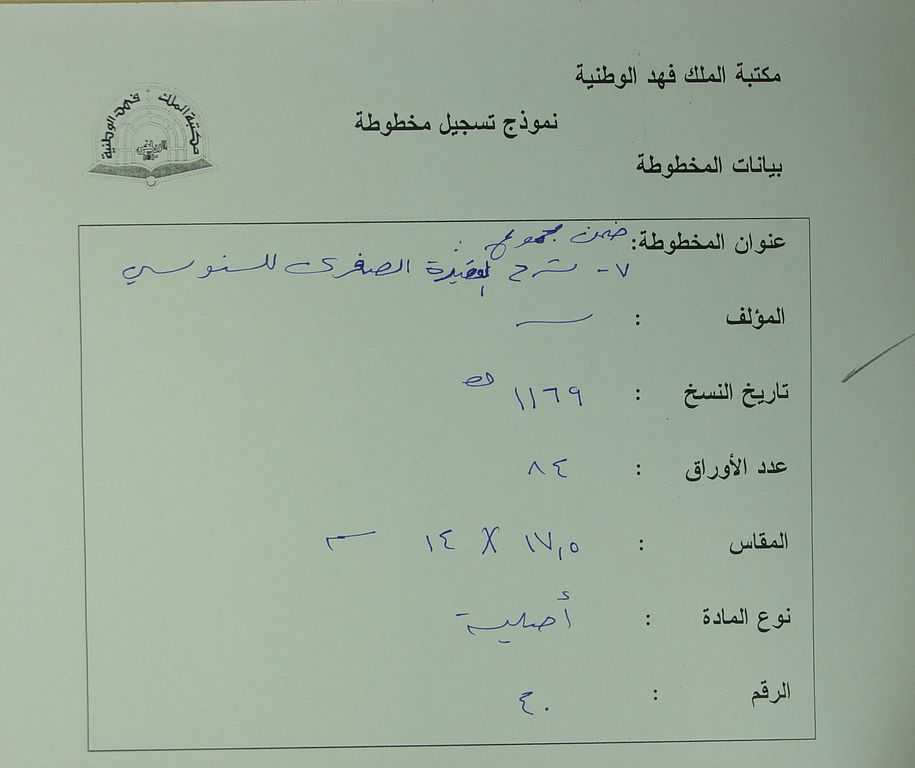 مكتبة الملك فهد الوطنية
نموذج تسجيل مخطوطة
مكتبة الملك فهد الوطنية
الرياض
بيانات المخطوطة
عنوان المخطوطة: ضمن مجموع
٧- شرح العقيدة الصغرى للسنوسي
المؤلف : ــــ
تاريخ النسخ : ١١٦٩ هـ
عدد الأوراق : ٨٤
المقاس : ١٧,٥ X ١٤ سم
نوع المادة : أصلية
الرقم :